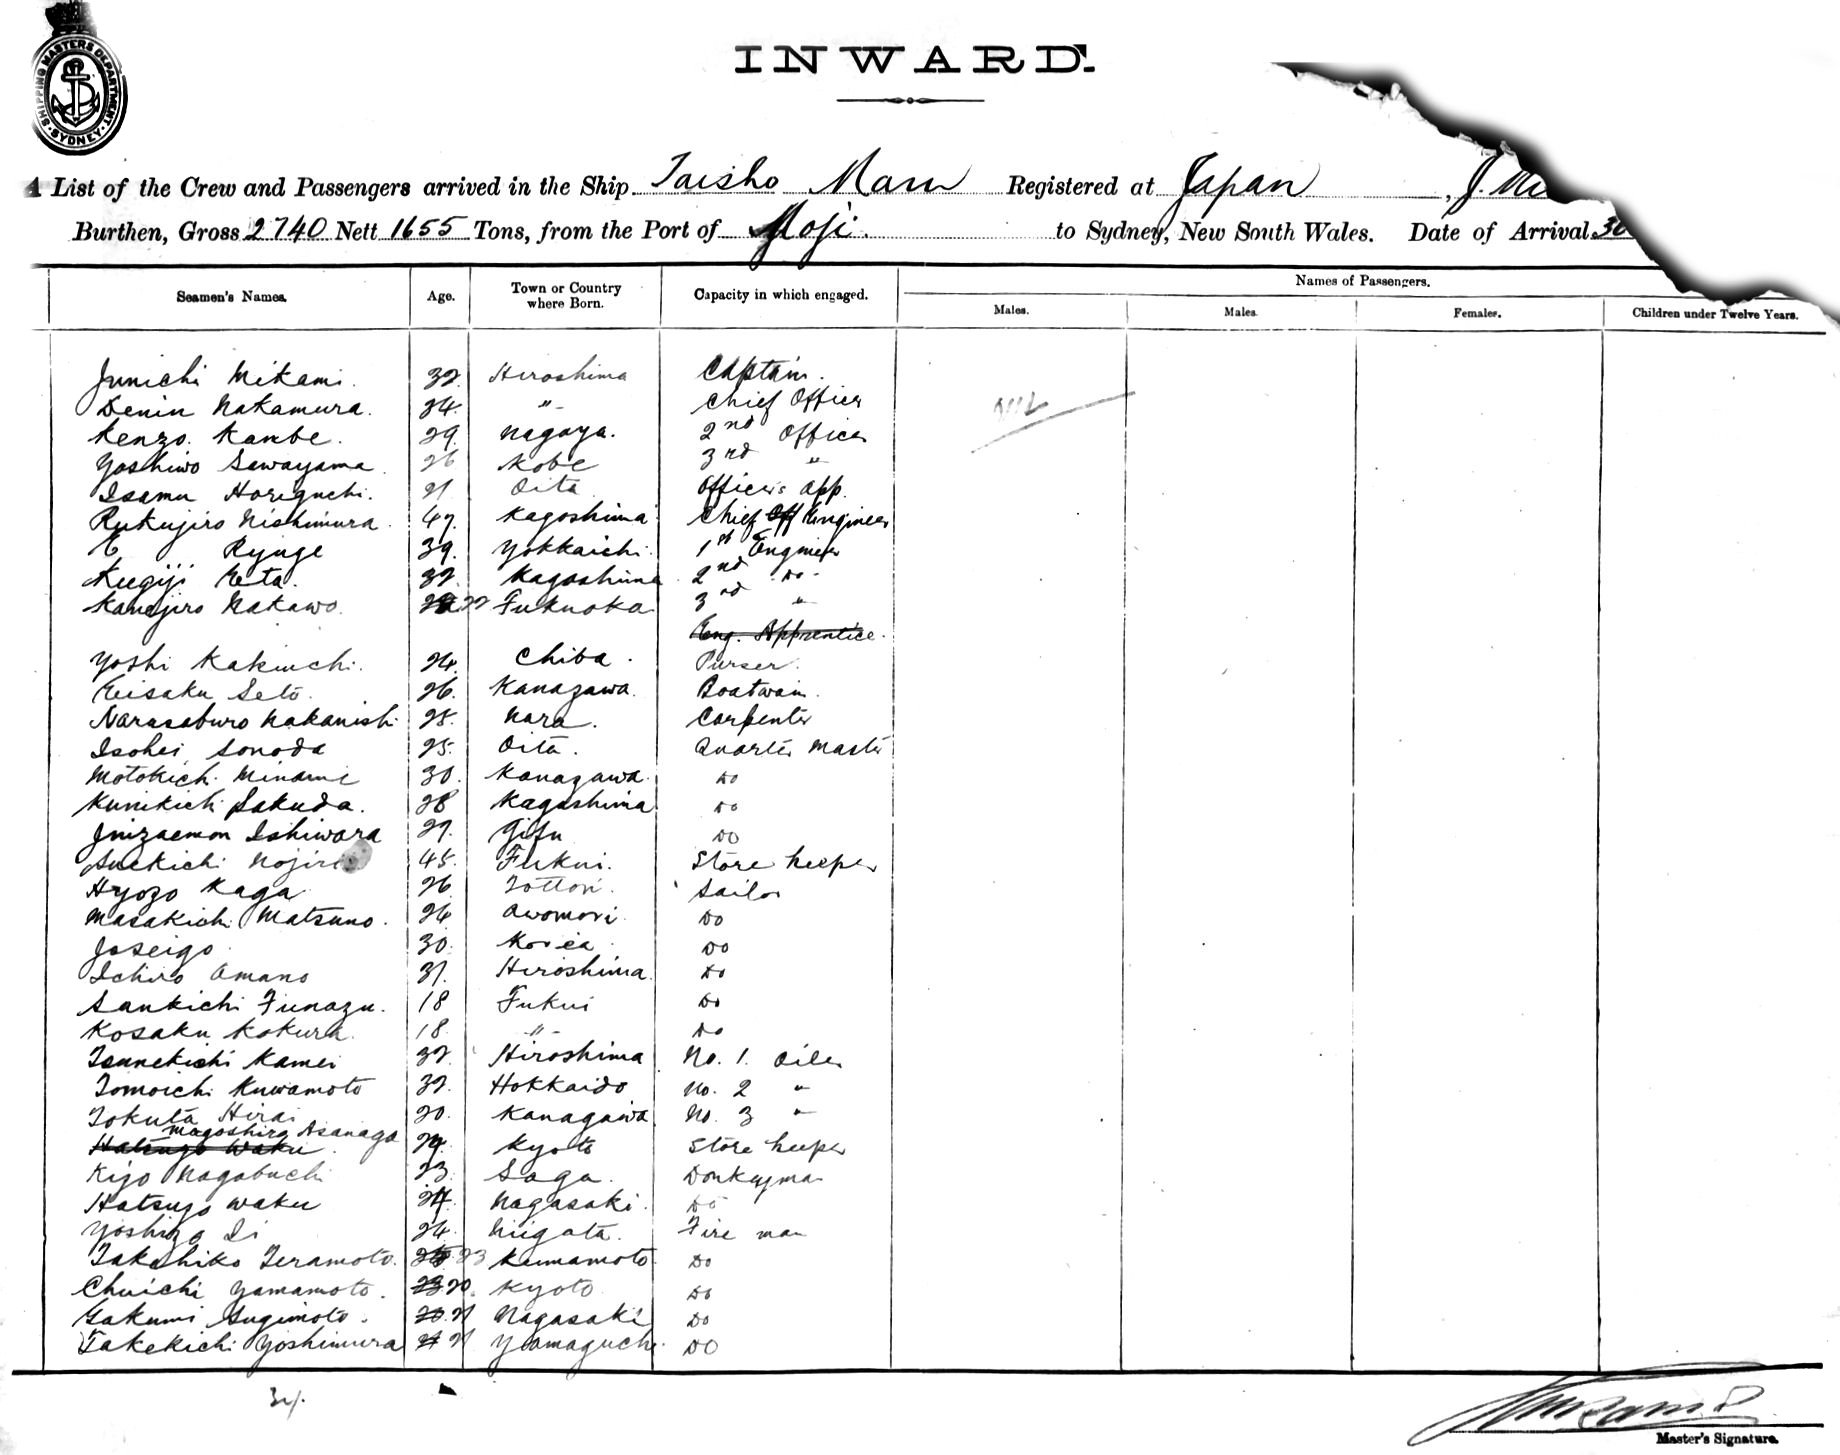 INWARD.
SHIPPING MASTERS DEPARTMENT SYDNEY
A List of the Crew and Passengers arrived in the Ship Taisho Maru Registered at Japan, J.
Burthen, Gross 2740 Nett 1655 Tons, from the Port of Moji. to Sydney, New South Wales. Date of Arrival 30
Names of Passengers.
Seamen's Names. Age. Town or Country where Born. Capacity in which engaged. Males. Males. Females. Children under Twelve Years.
Junichi Mikami. 32. Hiroshima Captain.
Denin Nakamura. 34. "- Chief Officer Nil
Kenzo. Kambe. 29. Nagoya. 2nd Officer
Yoshiwo Sawayama. 26 Kobe 3rd "
Isamu Horiguchi. 21. Oita Officer's App.
Rukujiro Nishimura. 47. Kagoshima Chief Off Engineer
E Ryuge 39. Yokkaichi. 1st Engineer
Kugiji Eta. 32. Kagoshima 2nd Do-
Kanejiro Nakawo. 22 Fukuoka 3rd "
Eng. Apprentice.
Yoshi Kakiuchi. 24. Chiba. Purser.
Eisaku Seto. 26. Kanazawa. Boatwain.
Narasaburo Nakanishi 28. Nara. Carpenter
Isohei Sonoda 25. Oita. Quarter Master
Motokichi Minami 30. Kanazawa. Do
Kunikichi Sakuda. 28 Kagoshima Do
Jnizaemon Ishiwara 27. Gifu Do
Suekichi Nojiri 45. Fukui. Store keeper
Hyozo Kaga 26 Tottori. Sailor
Masakichi Matsuno. 24 Awomori. Do
Joseigo. 30. Korea. Do
Ichiro Amano 31. Hiroshima. Do
Sankichi Funazu. 18 Fukui Do
Kosaku Kokura. 18. "- Do
Tsunekichi Kamei 32. Hiroshima No. 1. Oiler
Tomoichi Kuwamoto 32. Hokkaido No. 2 "
Tokuta Hirai 20. Kanagawa No. 3 "
Magoshiro Asanaga
Hatsugo Waku. 29. Kyoto Store keeper
Kijo Nagabuchi 23. Saga. Donkeyman
Hatsugo Waku 24. Nagasaki. Do
Yoshizo Ii 24. Niigata. Fire man
Takehiko Teramoto. 23 Kumamoto Do
Chuichi Yamamoto. 23 20. Kyoto Do
Gakumi Sugimoto. 20. 21 Nagasaki Do
Takekichi Yoshimura 21 Yamaguchi. Do
34.
Master's Signature.